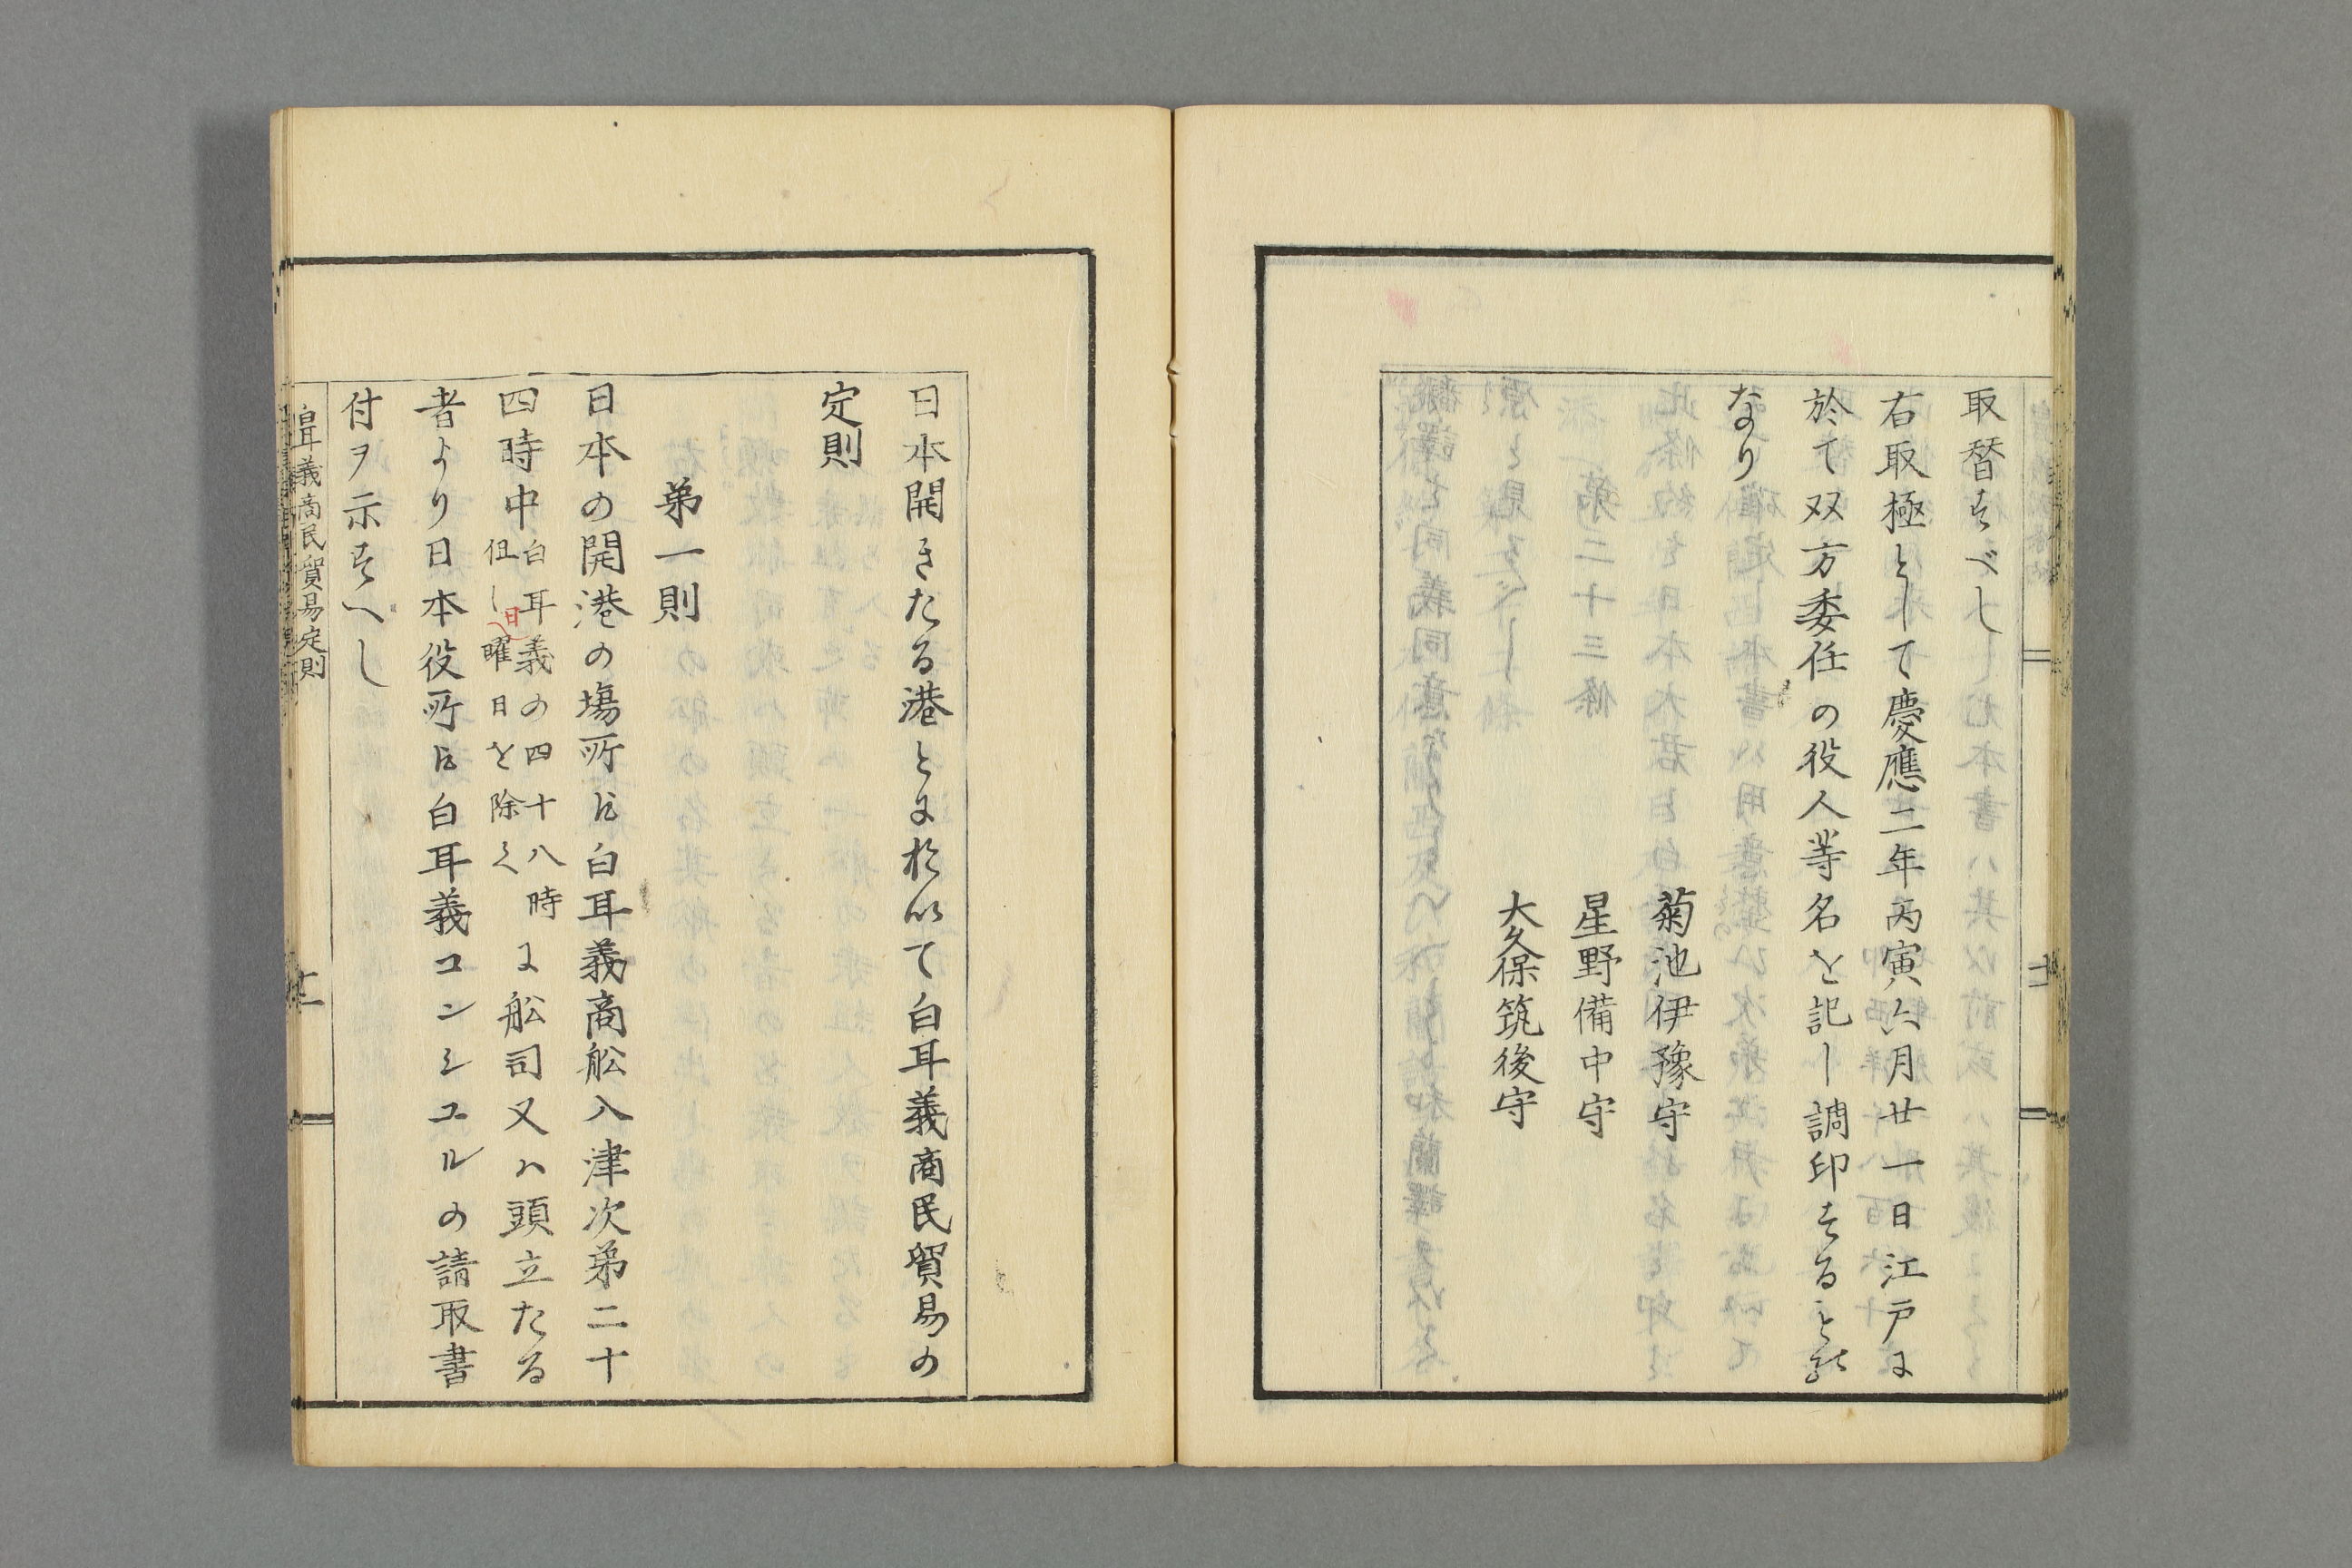 取替すべし
右取極として慶應二年丙寅六月廿一日江戸に
於て双方委任の役人等名を記し調印するもの
なり
菊池伊豫守
星野備中守
大久保筑後守
日本開きたる港とに於以て白耳義商民貿易の
定則
弟一則
日本の開港の塲所に白耳義商舩入津次弟二十
四時中
白耳義の四十八時
但し日曜日を除く
に舩司又ハ頭立たる
者より日本役所に白耳義コンシユルの請取書
付ヲ示すへし
白耳義商民貿易定則
十二